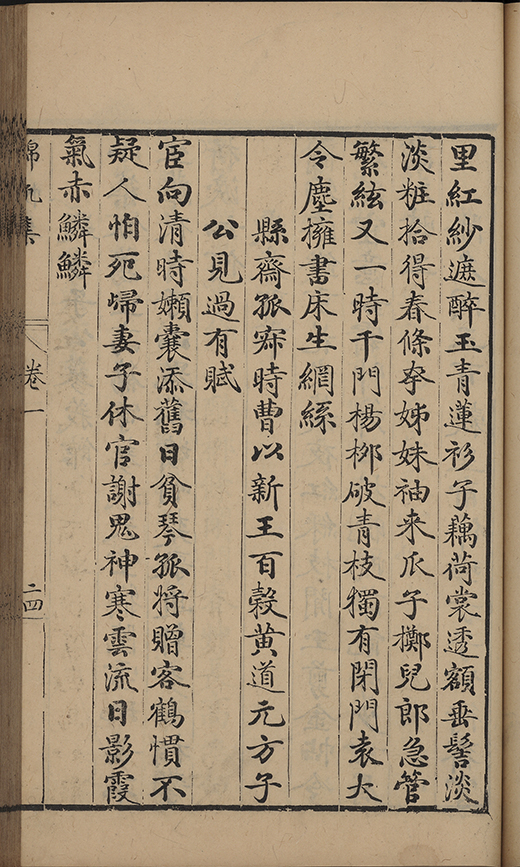 里紅紗遮醉玉青蓮衫子藕荷裳透額垂髻淡
淡粧拾得春條牽姊妹袖来瓜子擲兒郎急管
繁絃又一時千門楊桞破青枝獨有閉門袁大
令塵擁書床生網絲
縣齋孤寂時曹以新王百榖黄道元方子
公見過有賦
宦向清時嬾囊添舊日貧琴孤将贈客鶴慣不
疑人怕死歸妻子休官謝鬼神寒雲流日影霞
氣赤鱗鱗
錦帆集
卷一
二四